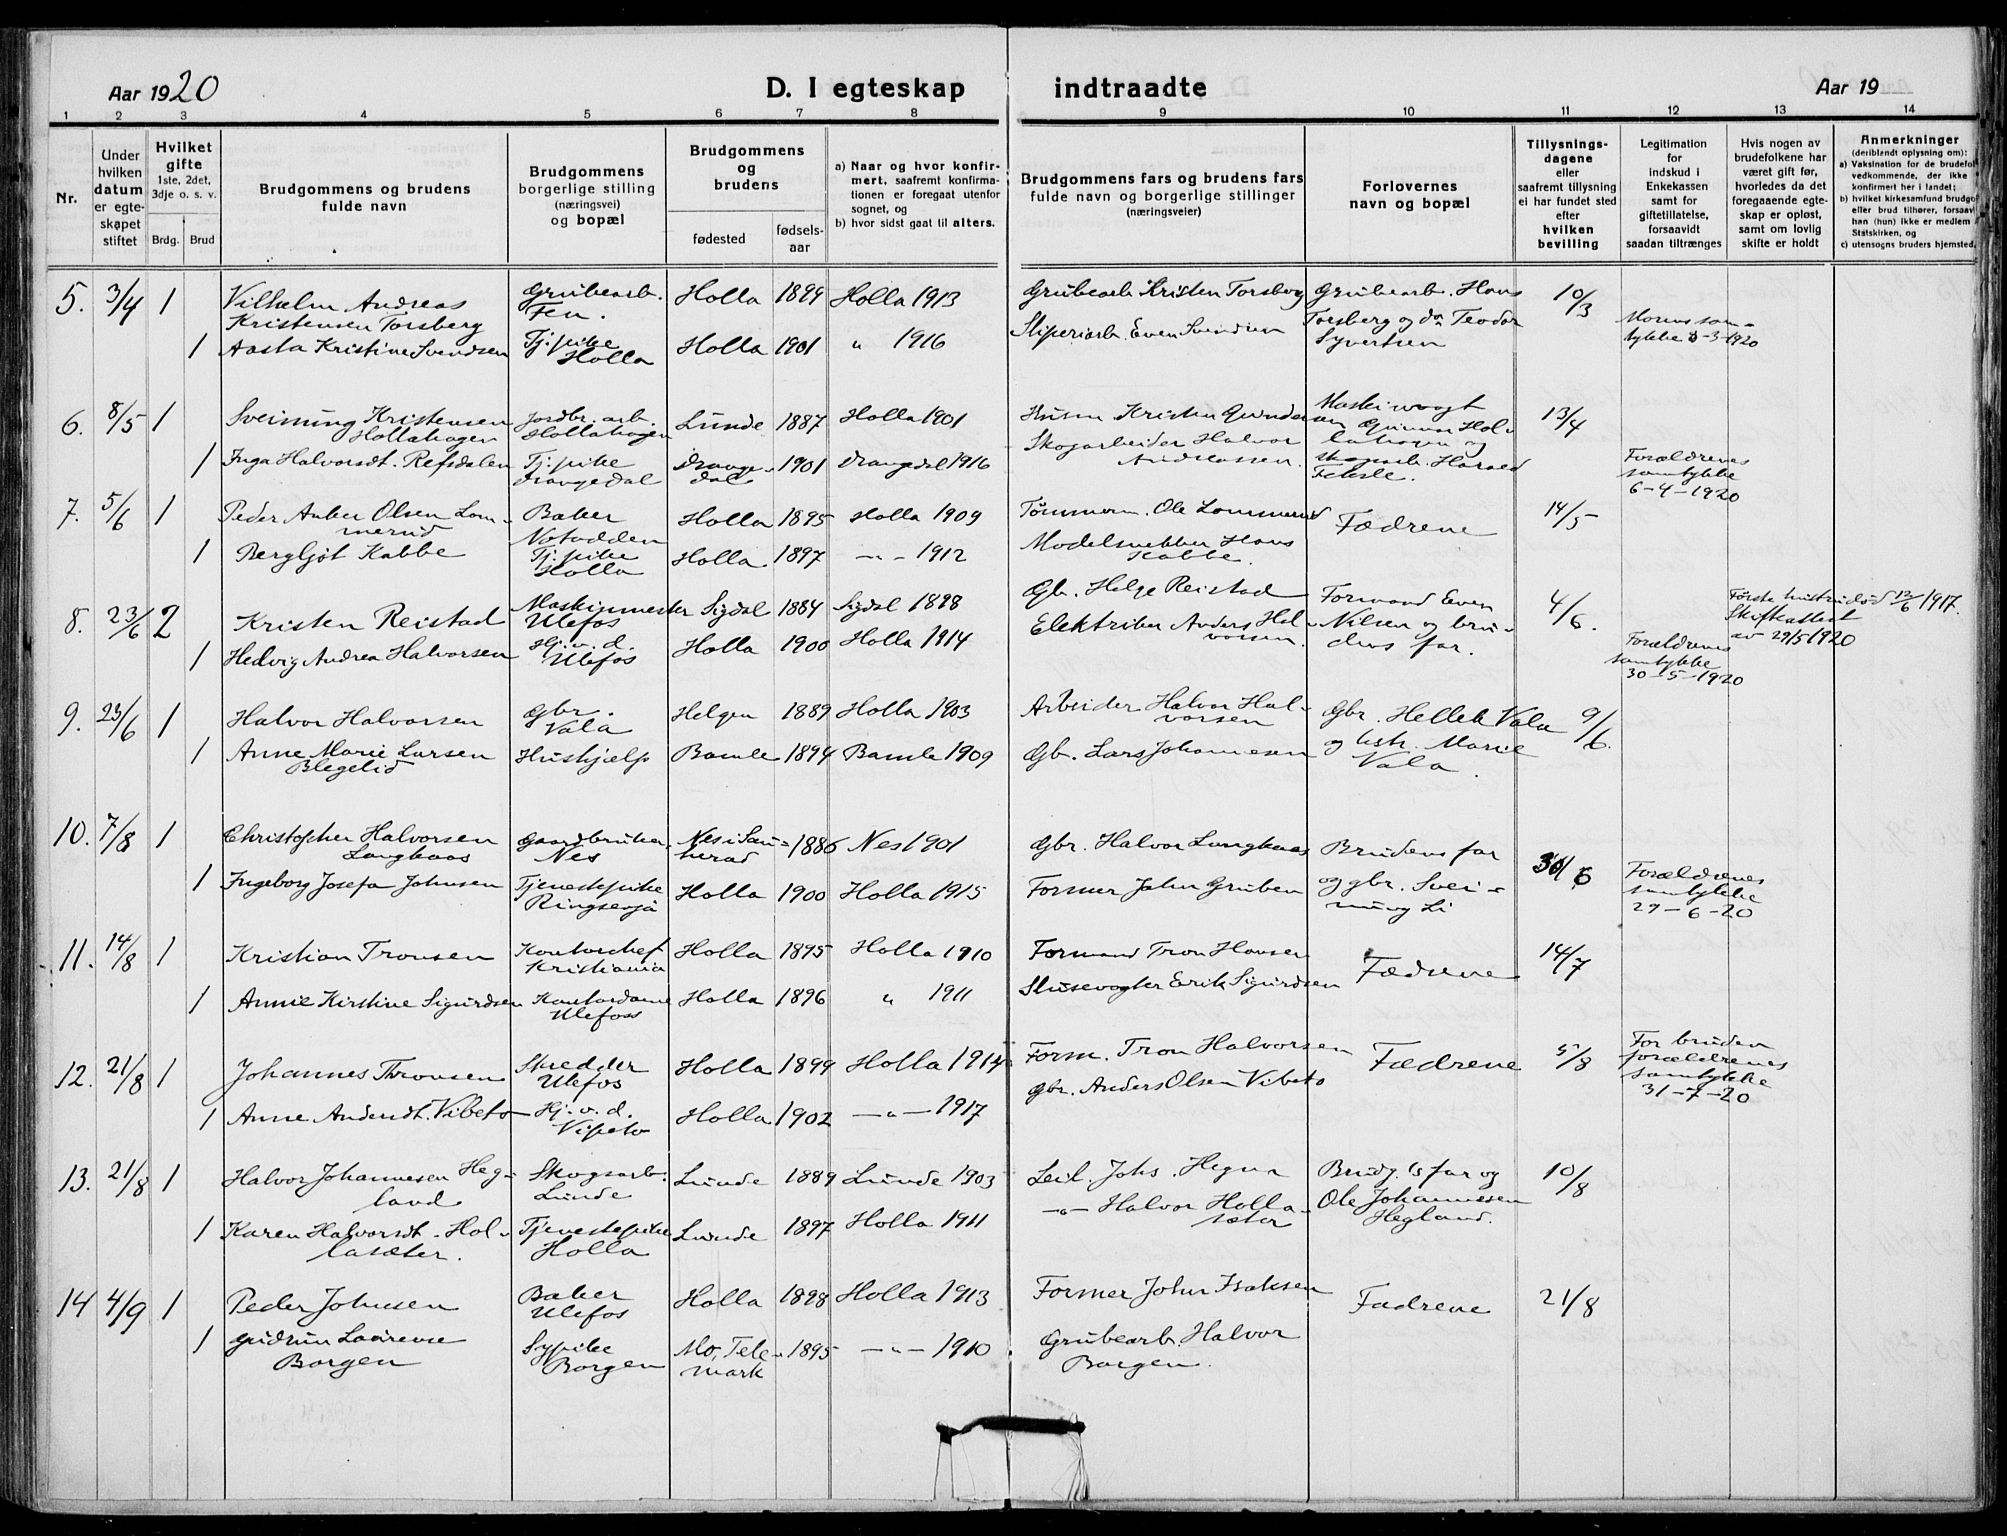 Aar 1920
D. I egteskap indtraadte
Aar 19
1 2 3 4 5 6 7 8 9 10 11 12 13 14
Nr.
Under hvilken datum er egte-skapet stiftet
Hvilket gifte 1ste, 2det, 3dje o. s. v.
Brdg. Brud
Brudgommens og brudens fulde navn
Brudgommens borgerlige stilling (næringsvei) og bopæl
Brudgommens og brudens
fødested
fødsels-aar
a) Naar og hvor konfir-mert, saafremt konfirma-tionen er foregaat utenfor sognet, og
b) hvor sidst gaat til alters.
Brudgommens fars og brudens fars fulde navn og borgerlige stillinger (næringsveier)
Forlovernes navn og bopæl
Tillysnings-dagene eller saafremt tillysning ei har fundet sted efter hvilken bevilling
Legitimation for indskud i Enkekassen samt for giftetillatelse, forsaavidt saadan tiltrænges
Hvis nogen av brudefolkene har været gift før, hvorledes da det foregaaende egte-skap er opløst, samt om lovlig skifte er holdt
Anmerkninger
(deriblandt oplysning om):
a) Vaksination for de brudefol vedkommende, der ikke konfirmert her i landet;
b) hvilket kirkesamfund brudgo eller brud tilhører, forsaav han (hun) ikke er medlem Statskirken, og
c) utensogns bruders hjemsted.
5. 3/4 1 Vilhelm Andreas Kristensen Torsberg Grubearb. Fen. Holla 1899 Holla 1913 Grubearb. Kristen Torsberg Grubearb. Hans Torsberg og do Teodor Syvertsen 10/3
1 Aasta Kristine Svendsen Tj.pike Holla Holla 1901 " 1916 Sliperiarb. Even Svendsen Morens sam-tykke 3-3-1920
6. 8/5 1 Sveinung Kristensen Hollahagen Jordbr. arb. Hollahagen Lunde 1887 Holla 1901 Husm. Kristen Gunders Maskinvogt Gunnar Hol-lahagen og skogarb. Harald 13/4
1 Inga Halvorsdt. Refsdalen Tj.pike Drangedal Drange-dal 1901 Drangedal 1916 Skogarbeider Halvor Andreassen. Forældrenes samtykke 6-4-1920
7. 5/6 1 Peder Anker Olsen Lom-merud Baker Notodden Holla 1895 Holla 1909 Tømmerm. Ole Lommerud Fædrene 14/5
1 Bergljot Kabbe Tj.pike Holla Holla 1897 -"- 1912 Modelsnekker Hans Kabbe.
8. 23/6 2 Kristen Reistad Maskinmester Ulefos Sigdal 1884 Sigdal 1898 Gbr. Helge Reistad Formand Even Nilsen og bru-dens far. 4/6. Første hustru død 12/6 1917. Skifteattest av 29/5 1920
1 Hedvig Andrea Halvorsen Hj.v.d. Ulefos Holla 1900 Holla 1914 Elektriker Anders Hal-vorsen. Forældrenes samtykke 30-5-1920
9. 23/6 1 Halvor Halvorsen Gbr. Vala Helgen 1889 Holla 1903 Arbeider Halvor Hal-vorsen Gbr. Hellek Vala og hstr. Marie Vala. 9/6.
1 Anne Marie Larsen Blegelid Hushjelp Bamle 1894 Bamle 1909 Gbr. Lars Johannesen
10. 7/8 1 Christopher Halvorsen Langkaas Gaardbruker, Nes Nes i Sau-herad 1886 Nes 1901 Gbr. Halvor Langkaas Brudens far og gbr. Svei-nung Li 30/6
1 Ingeborg Josefa Johnsen Tjenestepike Ringsevja Holla 1900 Holla 1915 Former John Gruben Forældrenes samtykke 29-6-20
11. 14/8 1 Kristian Tronsen Kontorchef Kristiania Holla 1895 Holla 1910 Formand Tron Hansen Fædrene 14/7
1 Annie Kirstine Sigurdsen Kontordame Ulefoss Holla 1896 " 1911 Slusevogter Erik Sigurdsen
12. 21/8 1 Johannes Thronsen Skredder Ulefos Holla 1899 Holla 1914 Form. Tron Halvorsen Fædrene 5/8 For bruden forældrenes samtykke 31-7-20
1 Anne Andersdt. Vibeto Hj.v.d. Vipeto Holla 1902 -"- 1917 Gbr. Anders Olsen Vibeto
13. 21/8 1 Halvor Johannesen Heg-land Skogsarb. Lunde Lunde 1889 Lunde 1903 Leil. Johs. Hegna Brudg.'s far og Ole Johannesen Hegland. 10/8
1 Karen Halvorsdt. Hol-lasæter. Tjenestepike Holla Lunde 1897 Holla 1911 -"- Halvor Holla-sæter
14 4/9 1 Peder Johnsen Baker Ulefos Holla 1898 Holla 1913 Former John Isaksen Fædrene 21/8
1 Gudrun Laurense Borgen Sypike Borgen Mo, Tele-mark 1895 -"- 1910 Grubearb. Halvor Borgen.